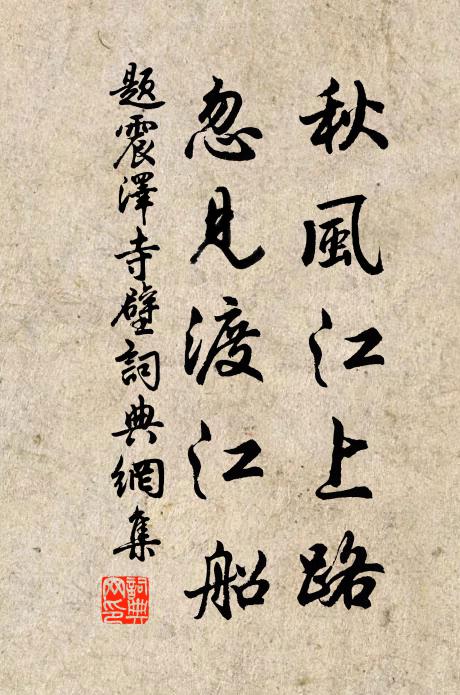 秋風江上路
忽見渡江船
題震澤寺壁詞典網集
詞典網印